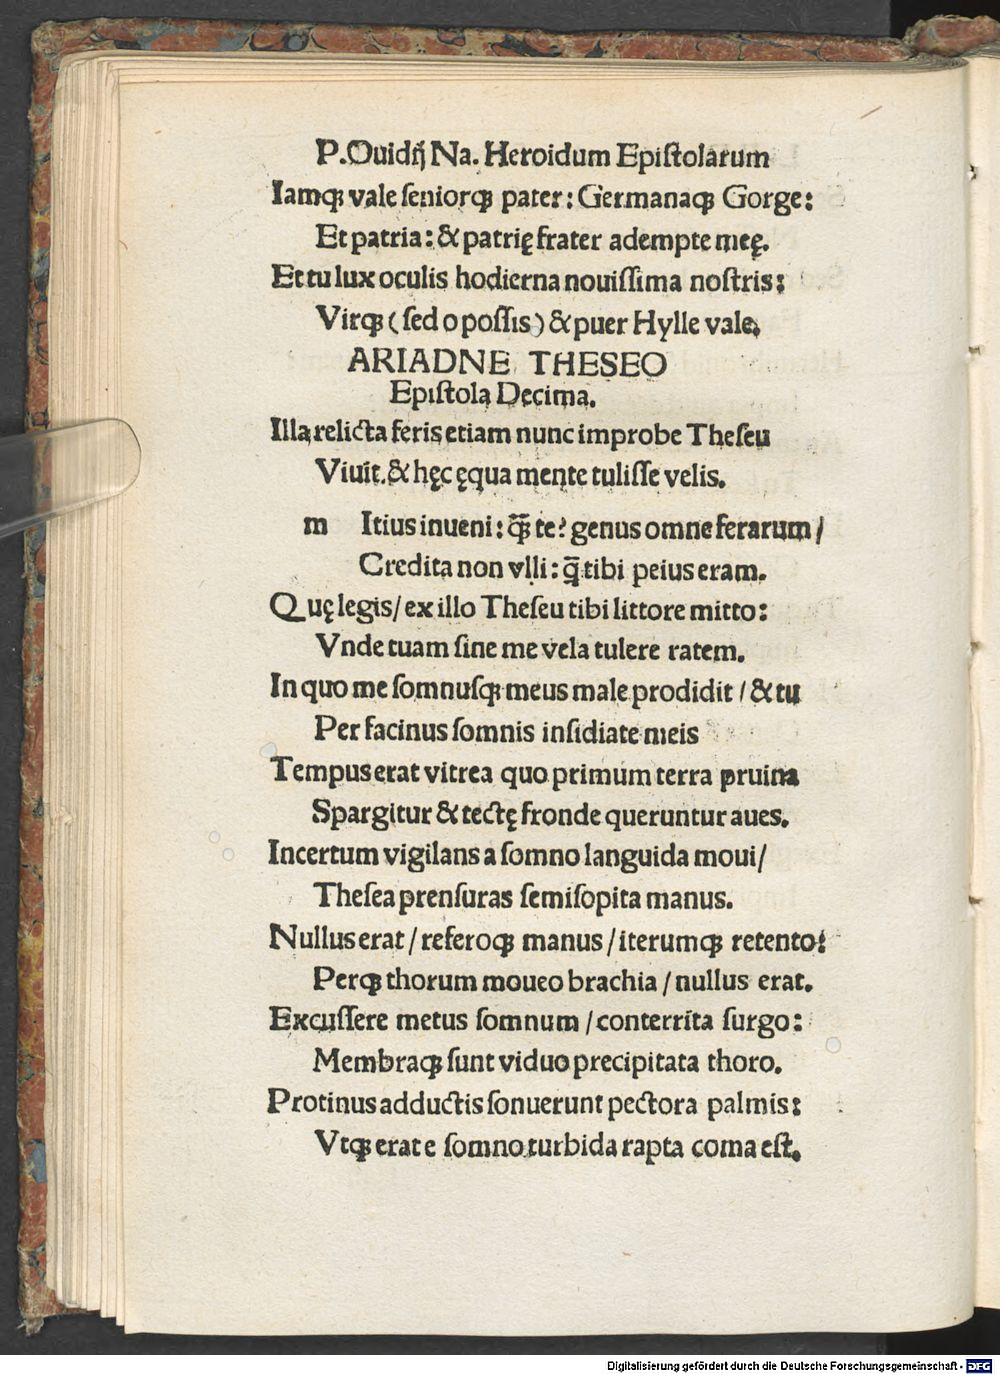 P.Ouidij Na. Heroidum Epiſtolarum
Iamqꝫ vale ſeniorqꝫ pater: Germanaqꝫ Gorge:
Et patria: & patrię frater adempte meę.
Et tu lux oculis hodierna nouiſſima noſtris:
Virqꝫ (ſed o poſſis) & puer Hylle vale.
ARIADNE THESEO
Epiſtola Decima.
Illa relicta feris etiam nunc improbe Theſeu
Viuit. & hęc ęqua mente tuliſſe velis.
m Itius inueni: qꝫ̄ te? genus omne ferarum /
Credita non vlli: q̄ tibi peius eram.
Quę legis / ex illo Theſeu tibi littore mitto:
Vnde tuam ſine me vela tulere ratem.
In quo me ſomnuſqꝫ meus male prodidit / & tu
Per facinus ſomnis inſidiate meis
Tempus erat vitrea quo primum terra pruina
Spargitur & tectę fronde queruntur aues.
Incertum vigilans a ſomno languida moui /
Theſea prenſuras ſemiſopita manus.
Nullus erat / referoqꝫ manus / iterumqꝫ retento:
Perqꝫ thorum moueo brachia / nullus erat.
Excuſſere metus ſomnum / conterrita ſurgo:
Membraqꝫ ſunt viduo precipitata thoro.
Protinus adductis ſonuerunt pectora palmis:
Vtqꝫ erat e ſomno turbida rapta coma eſt.
Digitalisierung gefördert durch die Deutsche Forschungsgemeinschaft - DFG